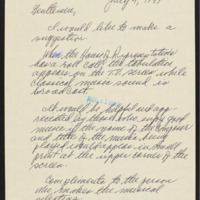 July 9, 1989
Gentlemen,
I would like to make a
suggestion.
When the House of Representatives
has a roll call the tabulation
appears on the T.V. screen while
classical music sound is
broadcast.
It would be helpful and app-
reciated by those who enjoy good
music if the name of the Composer
and title of the music being
played would appear in small
print at the upper corner of the
screen.
Compliments to the person
who makes the musical
selection